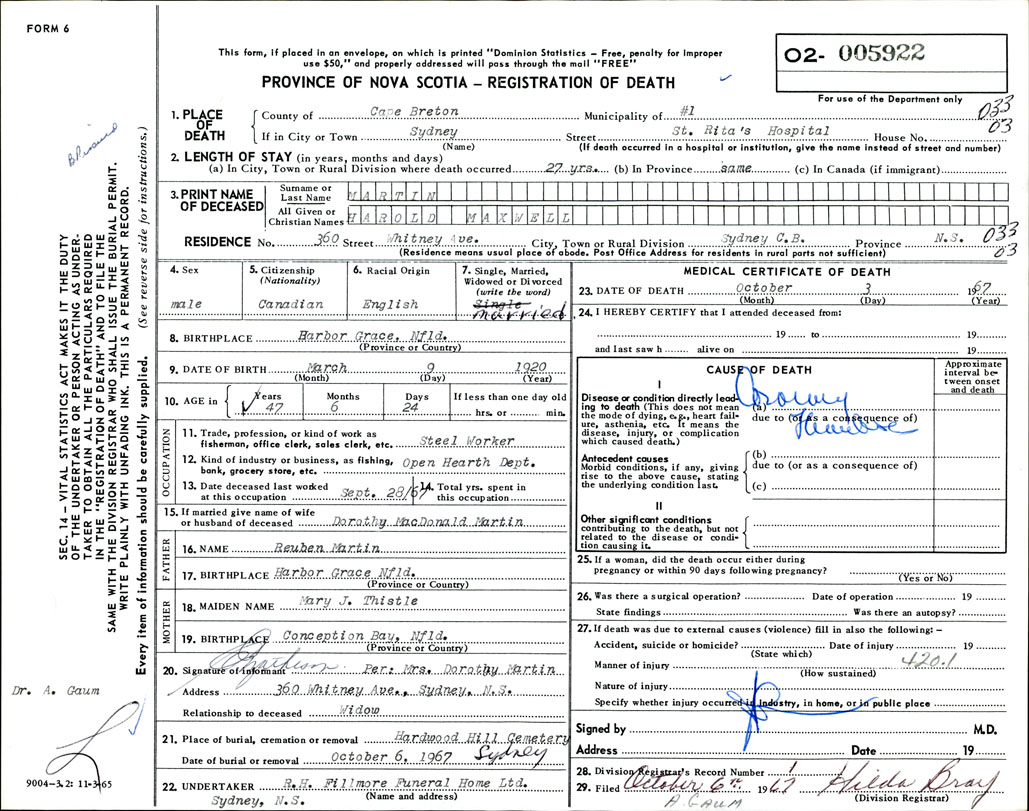 FORM 6
This form, if placed in an envelope, on which is printed "Dominion Statistics – Free, penalty for improper
use $50," and properly addressed will pass through the mail "FREE"
PROVINCE OF NOVA SCOTIA – REGISTRATION OF DEATH
02- 005922
For use of the Department only
1. PLACE OF DEATH
County of Cape Breton Municipality of #1 033
If in City or Town Sydney Street St. Rita's Hospital House No. 03
(Name) (If death occurred in a hospital or institution, give the name instead of street and number)
2. LENGTH OF STAY (in years, months and days)
(a) In City, Town or Rural Division where death occurred 27 yrs. (b) In Province same (c) In Canada (if immigrant)
3. PRINT NAME OF DECEASED
Surname or Last Name MARTIN
All Given or Christian Names HAROLD MAXWELL
RESIDENCE No. 360 Street Whitney Ave. City, Town or Rural Division Sydney C.B. Province N.S. 033
(Residence means usual place of abode. Post Office Address for residents in rural parts not sufficient) 03
4. Sex
male
5. Citizenship
(Nationality)
Canadian
6. Racial Origin
English
7. Single, Married,
Widowed or Divorced
(write the word)
Single
married
8. BIRTHPLACE Harbor Grace, Nfld.
(Province or Country)
9. DATE OF BIRTH March 9 1920
(Month) (Day) (Year)
10. AGE in
Years 47
Months 6
Days 24
If less than one day old
hrs. or min.
OCCUPATION
11. Trade, profession, or kind of work as
fisherman, office clerk, sales clerk, etc. Steel Worker
12. Kind of industry or business, as fishing,
bank, grocery store, etc. Open Hearth Dept.
13. Date deceased last worked
at this occupation Sept. 28/67
14. Total yrs. spent in
this occupation
15. If married give name of wife
or husband of deceased Dorothy MacDonald Martin
FATHER
16. NAME Reuben Martin
17. BIRTHPLACE Harbor Grace Nfld.
(Province or Country)
MOTHER
18. MAIDEN NAME Mary J. Thistle
19. BIRTHPLACE Conception Bay, Nfld.
(Province or Country)
20. Signature of informant Per: Mrs. Dorothy Martin
Address 360 Whitney Ave., Sydney, N.S.
Relationship to deceased Widow
21. Place of burial, cremation or removal Hardwood Hill Cemetery
Date of burial or removal October 6, 1967 Sydney
22. UNDERTAKER R.H. Fillmore Funeral Home Ltd.
Sydney, N.S. (Name and address)
MEDICAL CERTIFICATE OF DEATH
23. DATE OF DEATH October 3 1967
(Month) (Day) (Year)
24. I HEREBY CERTIFY that I attended deceased from:
19 to 19
and last saw h alive on 19
CAUSE OF DEATH
Approximate
interval be-
tween onset
and death
I
Disease or condition directly lead-
ing to death (This does not mean
the mode of dying, e.g., heart fail-
ure, asthenia, etc. It means the
disease, injury, or complication
which caused death.)
(a)
due to (or as a consequence of)
Antecedent causes
Morbid conditions, if any, giving
rise to the above cause, stating
the underlying condition last.
(b)
due to (or as a consequence of)
(c)
II
Other significant conditions
contributing to the death, but not
related to the disease or condi-
tion causing it.
25. If a woman, did the death occur either during
pregnancy or within 90 days following pregnancy?
(Yes or No)
26. Was there a surgical operation? Date of operation 19
State findings Was there an autopsy?
27. If death was due to external causes (violence) fill in also the following: –
Accident, suicide or homicide? Date of injury 19
(State which)
Manner of injury 420.1
(How sustained)
Nature of injury
Specify whether injury occurred in industry, in home, or in public place
Signed by M.D.
Address Date 19
28. Division Registrar's Record Number
29. Filed October 6th 1967 Hilda Bray
(Division Registrar)
A. GAUM
SEC. 14 – VITAL STATISTICS ACT MAKES IT THE DUTY
OF THE UNDERTAKER OR PERSON ACTING AS UNDER-
TAKER TO OBTAIN ALL THE PARTICULARS REQUIRED
IN THE "REGISTRATION OF DEATH" AND TO FILE THE
SAME WITH THE DIVISION REGISTRAR WHO SHALL ISSUE THE BURIAL PERMIT.
WRITE PLAINLY WITH UNFADING INK. THIS IS A PERMANENT RECORD.
Every item of information should be carefully supplied. (See reverse side for instructions.)
Dr. A. Gaum
9004-3.2: 11-3-65